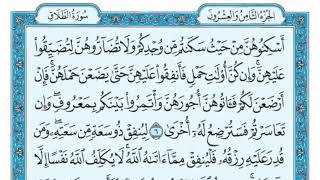 الجزء الثامن والعشرون سورة الطلاق
أَسْكِنُوهُنَّ مِنْ حَيْثُ سَكَنتُم مِّن وُجْدِكُمْ وَلَا تُضَآرُّوهُنَّ لِتُضَيِّقُوا۟
عَلَيْهِنَّ ۚ وَإِن كُنَّ أُو۟لَٰتِ حَمْلٍ فَأَنفِقُوا۟ عَلَيْهِنَّ حَتَّىٰ يَضَعْنَ حَمْلَهُنَّ ۚ فَإِنْ
أَرْضَعْنَ لَكُمْ فَـَٔاتُوهُنَّ أُجُورَهُنَّ ۖ وَأْتَمِرُوا۟ بَيْنَكُم بِمَعْرُوفٍ ۖ وَإِن
تَعَاسَرْتُمْ فَسَتُرْضِعُ لَهُۥٓ أُخْرَىٰ ٦ لِيُنفِقْ ذُو سَعَةٍ مِّن سَعَتِهِۦ ۖ وَمَن
قُدِرَ عَلَيْهِ رِزْقُهُۥ فَلْيُنفِقْ مِمَّآ ءَاتَىٰهُ ٱللَّهُ ۚ لَا يُكَلِّفُ ٱللَّهُ نَفْسًا إِلَّا